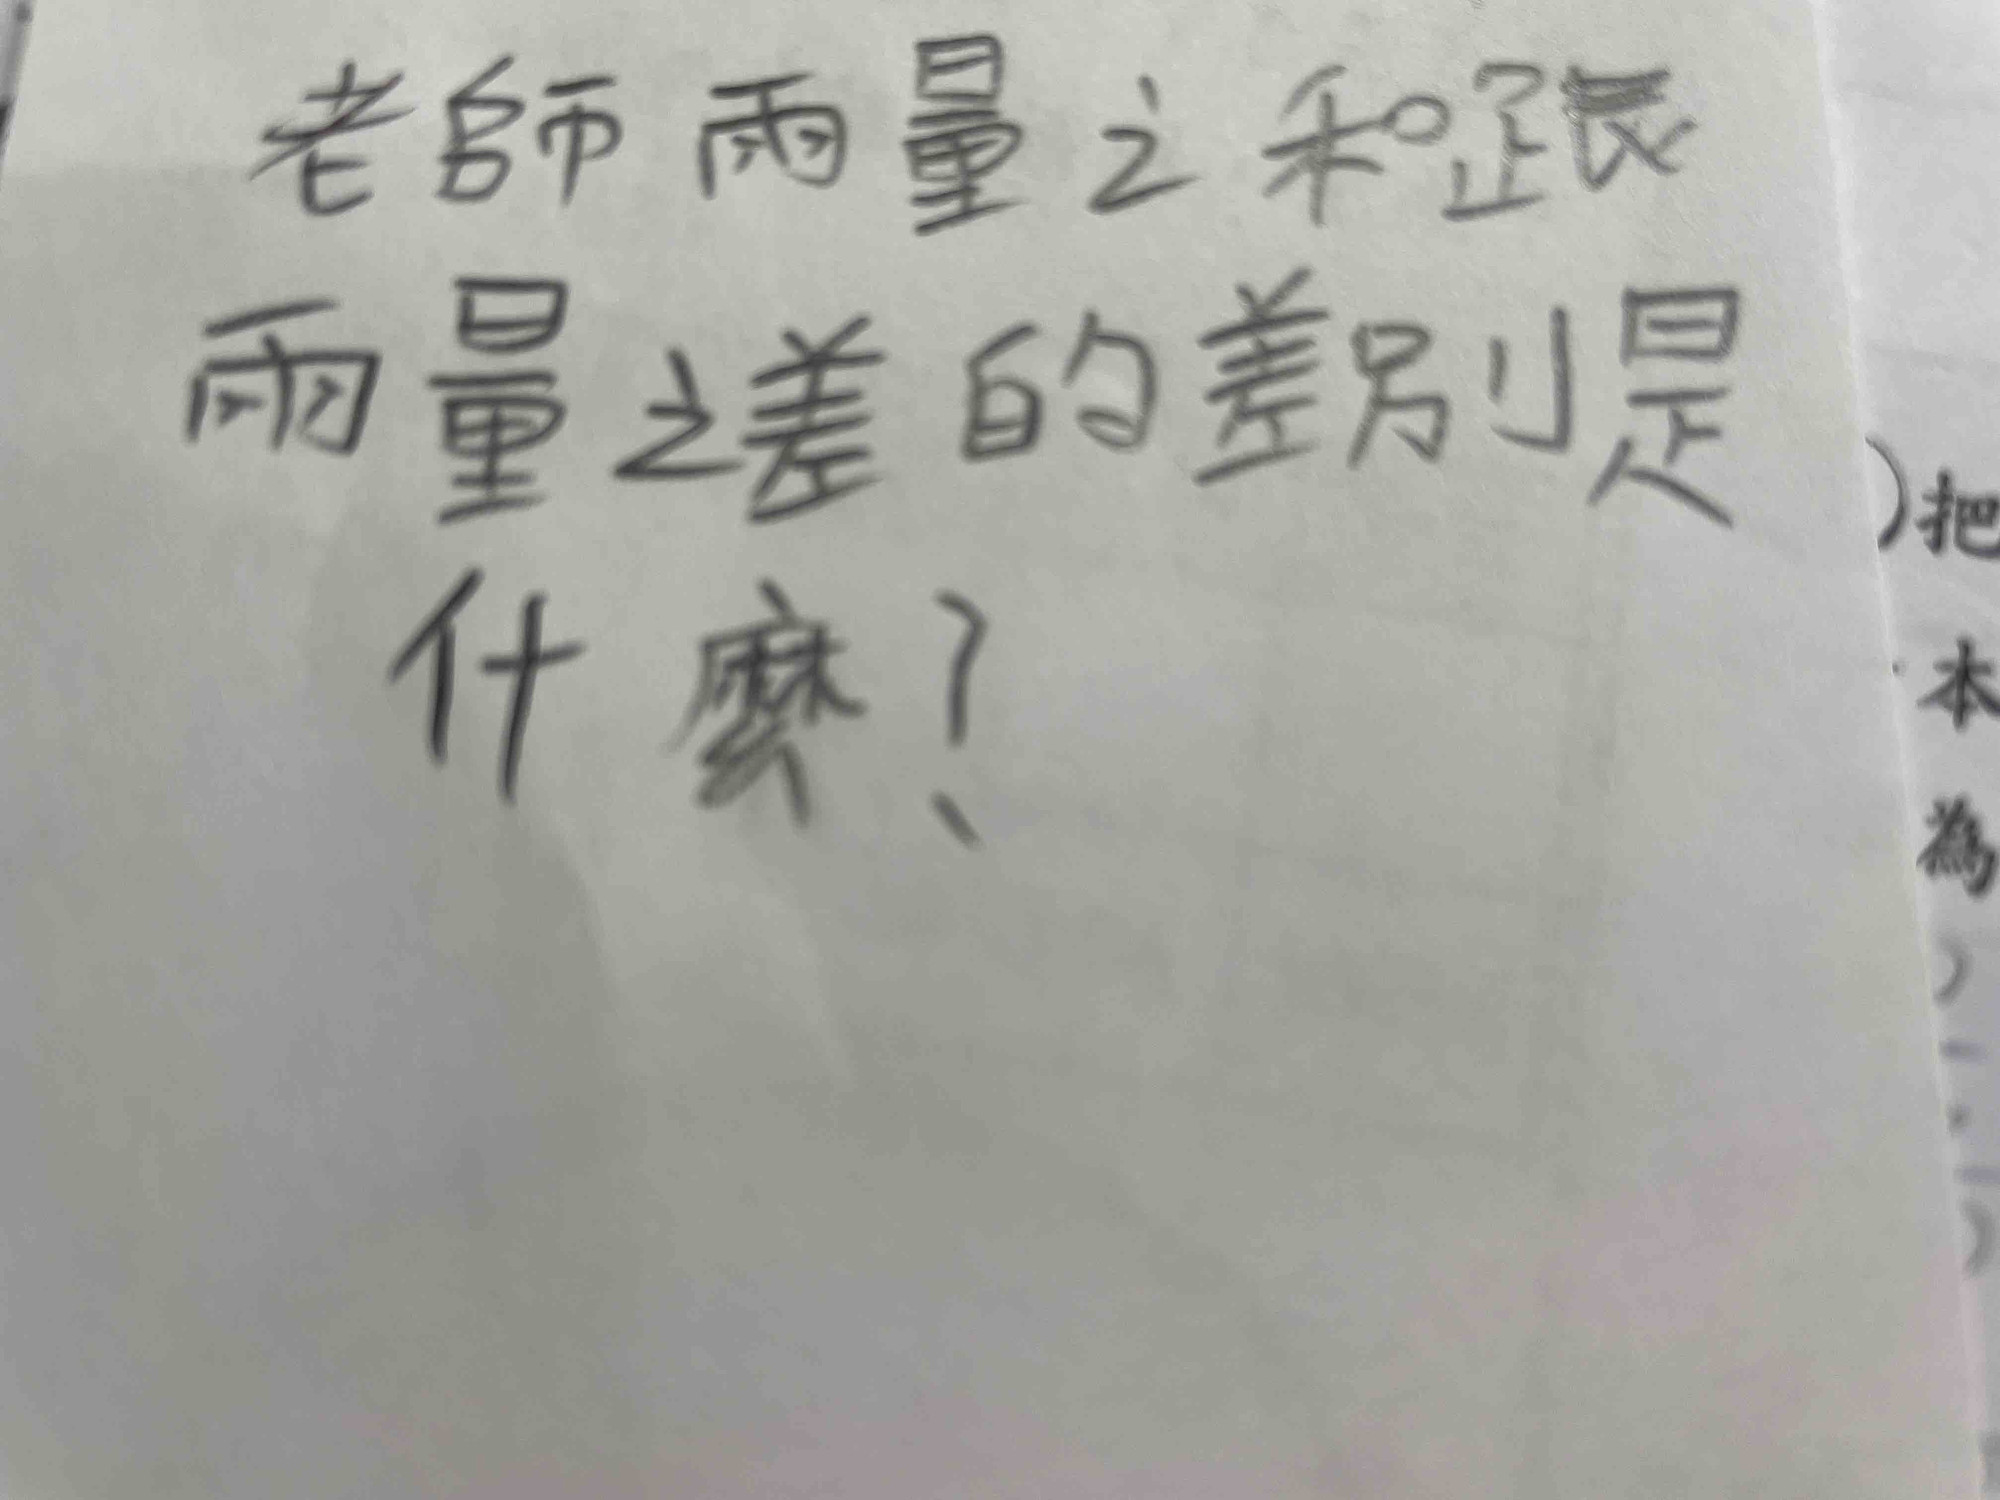 老師兩量之和跟
兩量之差的差別是
什麼？
）把
本
為
）